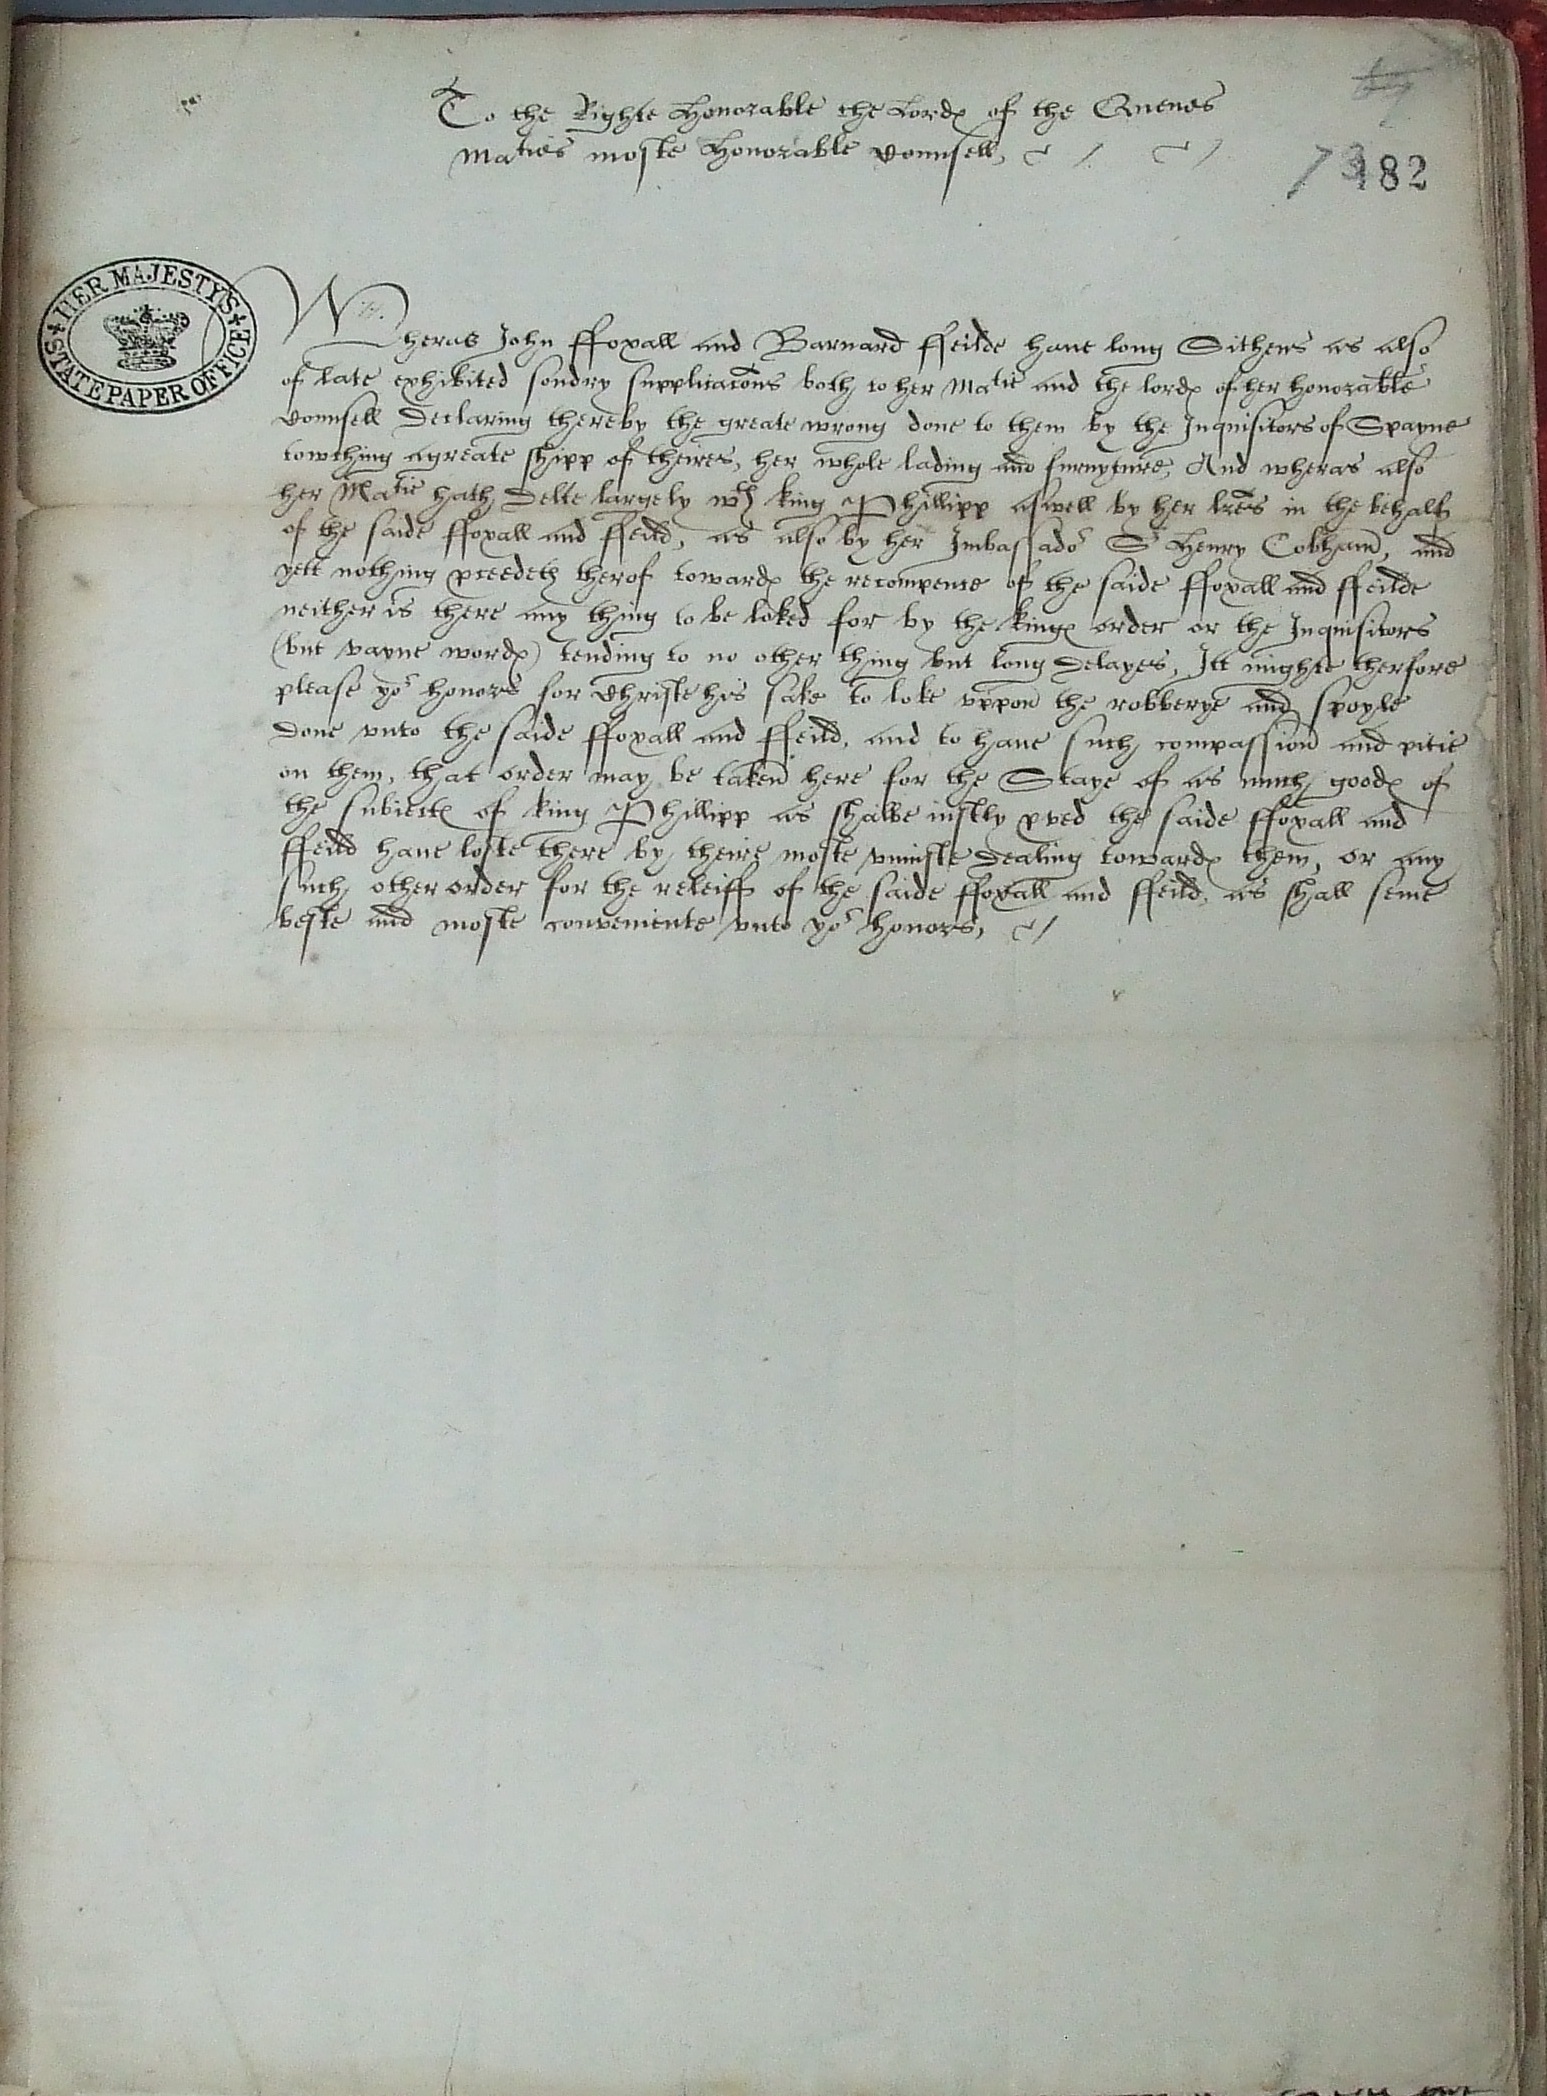 To the Righte Honorable the Lordes of the Quenes
Maties moste Honorable Counsell,
182
HER MAJESTY'S
STATE PAPER OFFICE
Wheras John ffoxall and Barnard ffeilde haue long Sithens as also
of late exhibited sondry supplicacons both to her Matie and the lordes of her honorable
Counsell Declaring thereby the greate wrong done to them by the Inquisitors of Spayne
towching a greate shipp of theires, her whole lading and furnyture, And wheras also
her Matie hath Delte largely wth king Phillipp aswell by her lres in the behalf
of the saide ffoxall and ffeild, as also by her Imbassador Sr Henry Cobham, and
yett nothing pceedeth therof towardes the recompence of the saide ffoxall and ffeilde
neither is there any thing to be loked for by the kinges order or the Inquisitors
(but vayne wordes) tending to no other thing but long Delayes, Itt mighte therfore
please yor honors for Christe his sake to loke vppon the robberye and spoyle
Done vnto the saide ffoxall and ffeild, and to haue such compassion and pitie
on them, that order may be taken here for the Staye of as much goodes of
the subiectes of king Phillipp as shalbe iustly pved the saide ffoxall and
ffeild haue loste there by theire moste vniuste Dealing towardes them, or any
such other order for the releiff of the saide ffoxall and ffeild, as shall seme
beste and moste conveniente vnto yor honors,